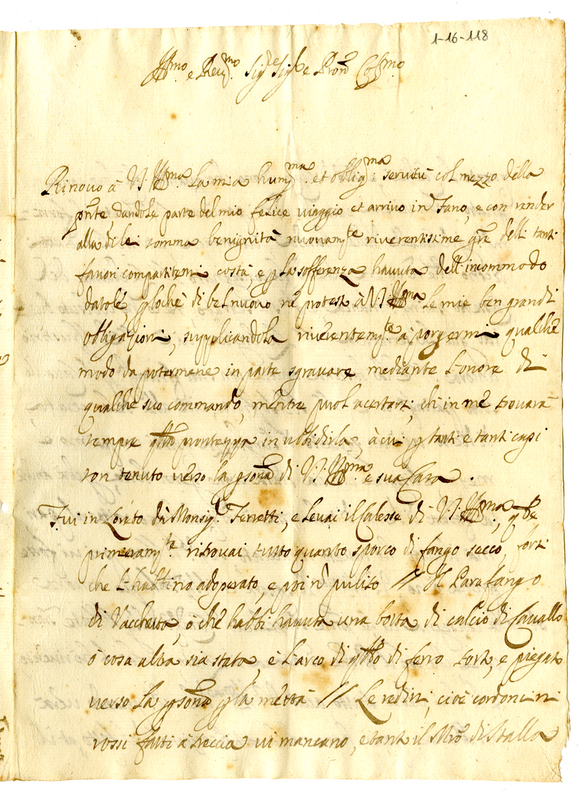 1-16-118
Ill.mo e Rev.mo Sig.re Sig.re e Pron Col.mo
Rinovo à V.S. Ill.ma la mia hum.ma et obblig.ma servitù col mezzo della
pnte dandole parte del mio felice viaggio et arrivo in Fano, e con render
alla di lei somma benignità nuovam.te riverentissime gre delli tanti
favori compartitemi costà, e p la sofferenza havuta dell'incommodo
datole, p loche di bel nuovo ne protesto à V.S. Ill.ma le mie ben grandi
obligazioni, supplicandola riverentem.te à porgermi qualche
modo da potermene in parte sgravare mediante l'onore di
qualche suo commando, mentre puol accertarsi, che in me trovarà
sempre prontezza in ubidirla, à cui p tanti e tanti capi
son tenuto verso la psona di V.S. Ill.ma e sua Casa.
Fui in Loreto da Monsig.r Ferretti, e levai il Calesse di V.S. Ill.ma, che
primieram.te ritrovai tutto quanto sporco di fango secco,
che l'habbino adoperato, e poi n pulito // Il Parafango
di Vacchetta, ò che habbi havuta una botta di calcio di Cavallo
ò cosa altra sia stata è l'arco di qllo di ferro torto, e piegato
verso la psona p la metà // Le redini cioè cordoncini
rossi fatti à treccia vi mancano, e tanto il Mro di stalla